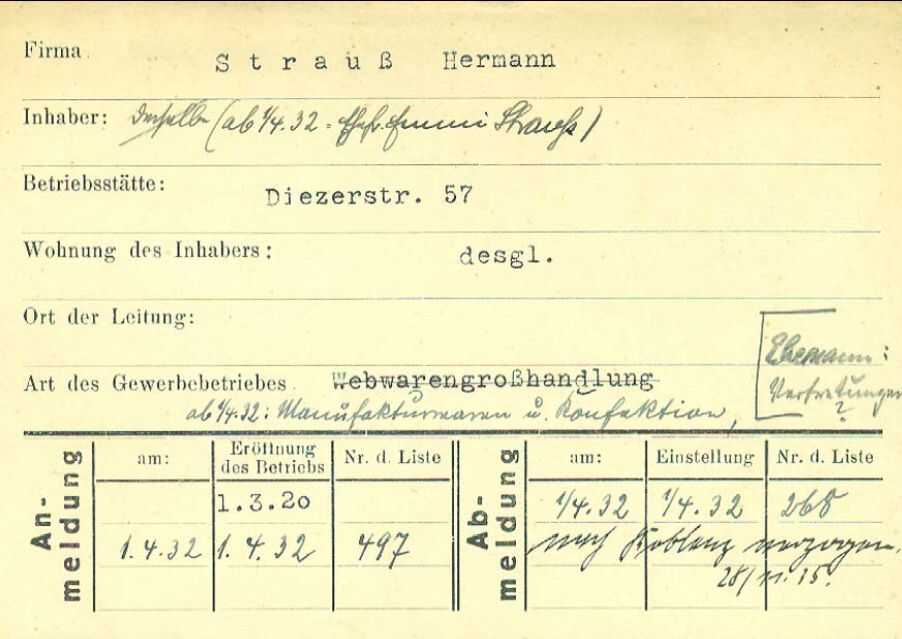 Firma Strauß Hermann
Inhaber: derselbe (ab 1/4.32 = Ehefr. Emmi Strauß)
Betriebsstätte: Diezerstr. 57
Wohnung des Inhabers: desgl.
Ort der Leitung:
Ehemann:
Art des Gewerbebetriebes Webwarengroßhandlung
Vertretungen
?
ab 1/4.32: Manufakturwaren u. Konfektion,
An-meldung
am: Eröffnung des Betriebs Nr. d. Liste
1.3.20
1.4.32 1.4.32 497
Ab-meldung
am: Einstellung Nr. d. Liste
1/4.32 1/4.32 268
nach Koblenz verzogen.
28/11.35.